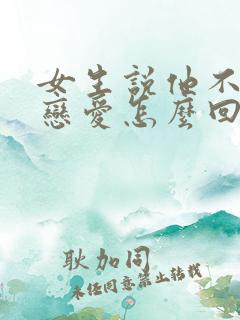 女生說他不
戀愛怎麼回
耿加同
未经同意禁止转载